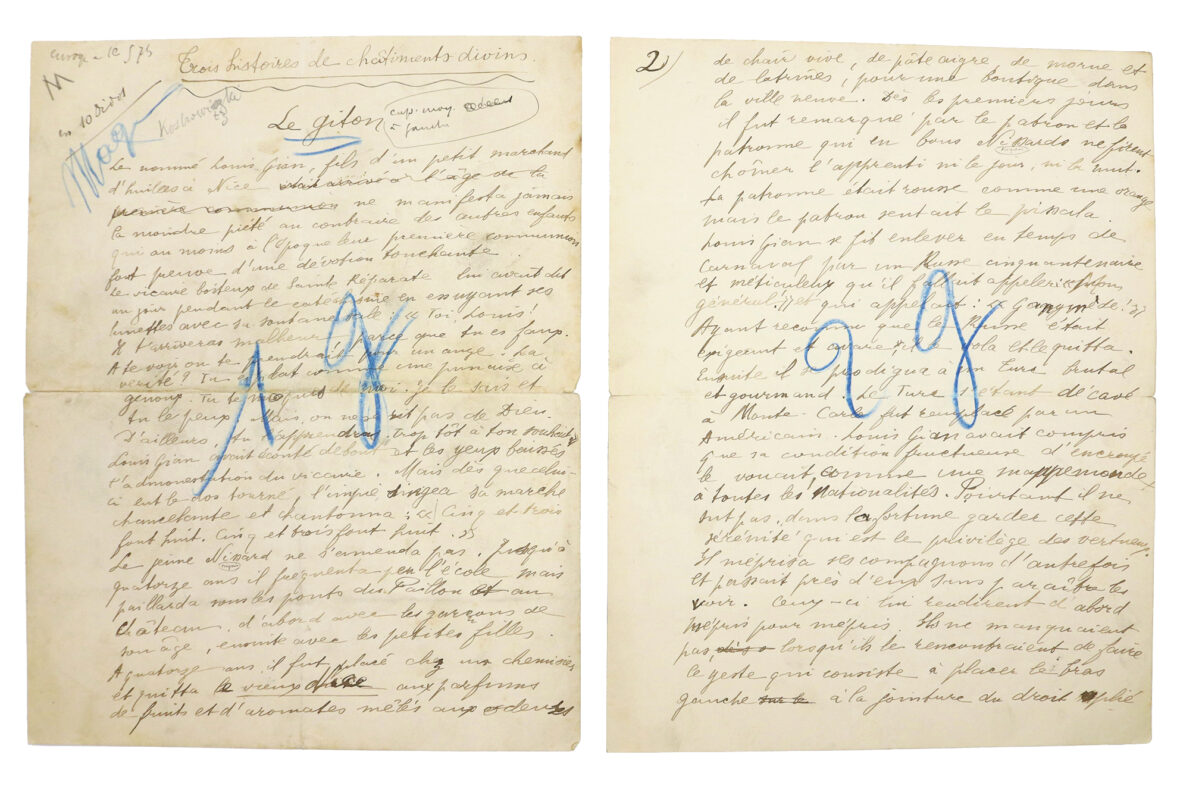 Trois histoires de châtiments divins.
en 10 Didot
Kostrowitzky
Le giton
cap. moy
à gauche
Le nommé Louis Gian, fils d'un petit marchand
d'huiles à Nice était arrivé à l'âge de la
première communion ne manifesta jamais
la moindre piété au contraire des autres enfants
qui au moins à l'époque leur première communion
font preuve d'une dévotion touchante.
Le vicaire boiteux de Sainte Réparate lui avait dit
un jour pendant le catéchisme en essuyant ses
lunettes avec sa soutane sale : « Toi, Louis !
Il t'arrivera malheur, parce que tu es faux.
A te voir on te prendrait pour un ange. La
vérité ? Tu es plat comme une punaise à
genoux. Tu te moques de moi. Je le sais et
tu le peux. Mais on ne se rit pas de Dieu.
D'ailleurs, tu l'apprendras trop tôt à ton souhait »
Louis Gian avait écouté debout et les yeux baissés
l'admonestation du vicaire. Mais dès que celui-
ci eut le dos tourné, l'impie singea sa marche
chancelante et chantonna : « Cinq et trois
font huit. Cinq et trois font huit. »
Le jeune Nissard ne s'amenda pas. Jusqu'à
quatorze ans il fréquenta peu l'école mais
paillarda sous les ponts du Paillon et au
Château, d'abord avec les garçons de
son âge, ensuite avec les petites filles.
A quatorze ans, il fut placé chez un chemisier
et quitta le vieux Nice aux parfums
de fruits et d'aromates mêlés aux odeurs
1 g
2)
de chair vive, de pâte aigre, de morue et
de latrines, pour une boutique dans
la ville neuve. Dès les premiers jours
il fut remarqué par le patron et la
patronne qui en bons Nissards ne firent
chômer l'apprenti ni le jour, ni la nuit.
La patronne était rousse comme une orange
mais le patron sentait le pissala.
Louis Gian se fit enlever en temps de
Carnaval par un Russe cinquantenaire
et méticuleux qu'il fallait appeler « Mon
général ! » et qui appelait : « Ganymède ! »
Ayant reconnu que le Russe était
exigeant et avare, il le vola et le quitta.
Ensuite il se prodigua à un Turc brutal
et gourmand. Le Turc étant décavé
à Monte-Carlo fut remplacé par un
Américain. Louis Gian avait compris
que sa condition fructueuse d'encrougé
le vouait comme une mappemonde
à toutes les nationalités. Pourtant il ne
sut pas, dans la fortune garder cette
sérénité qui est le privilège des vertueux.
Il méprisa ses compagnons d'autrefois
et passait près d'eux sans paraître les
voir. Ceux-ci lui rendirent d'abord
mépris pour mépris. Ils ne manquaient
pas, lorsqu'ils le rencontraient de faire
le geste qui consiste à placer le bras
gauche sur le à la jointure du droit plié
2 g